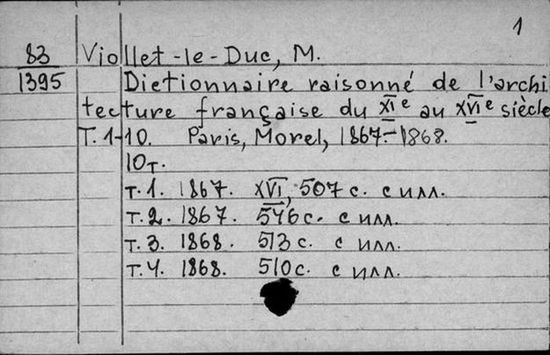 1
83 Viollet-le-Duc, M.
1395 Dictionnaire raisonné de l'archi
tecture française du XIe au XVIe siècle
T. 1-10. Paris, Morel, 1867-1868.
10т.
т. 1. 1867. XVI, 507 с. с илл.
т. 2. 1867. 576 с. с илл.
т. 3. 1868. 513 с. с илл.
т. 4. 1868. 510 с. с илл.